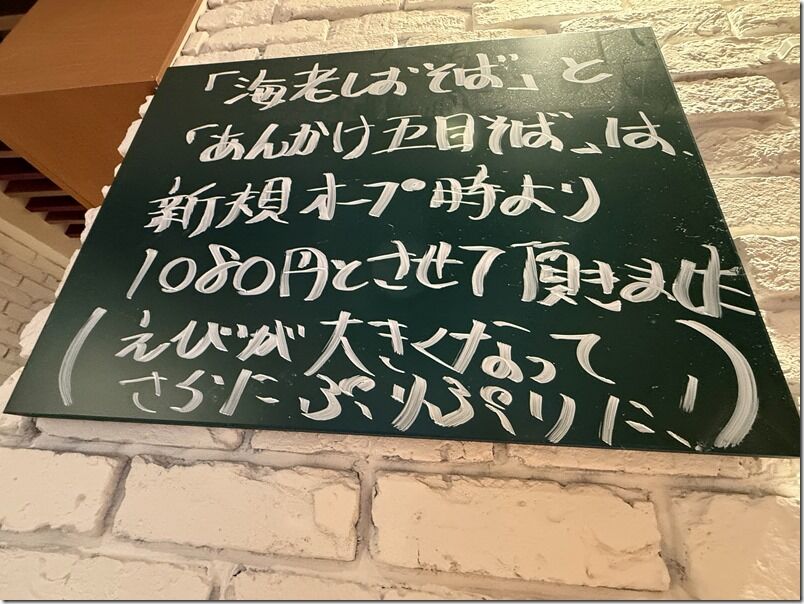 「海老しおそば」と
「あんかけ五目そば」は、
新規オープ時より
1080円とさせて頂きました
(えびが大きくなって
さらにぷりぷりに、!)